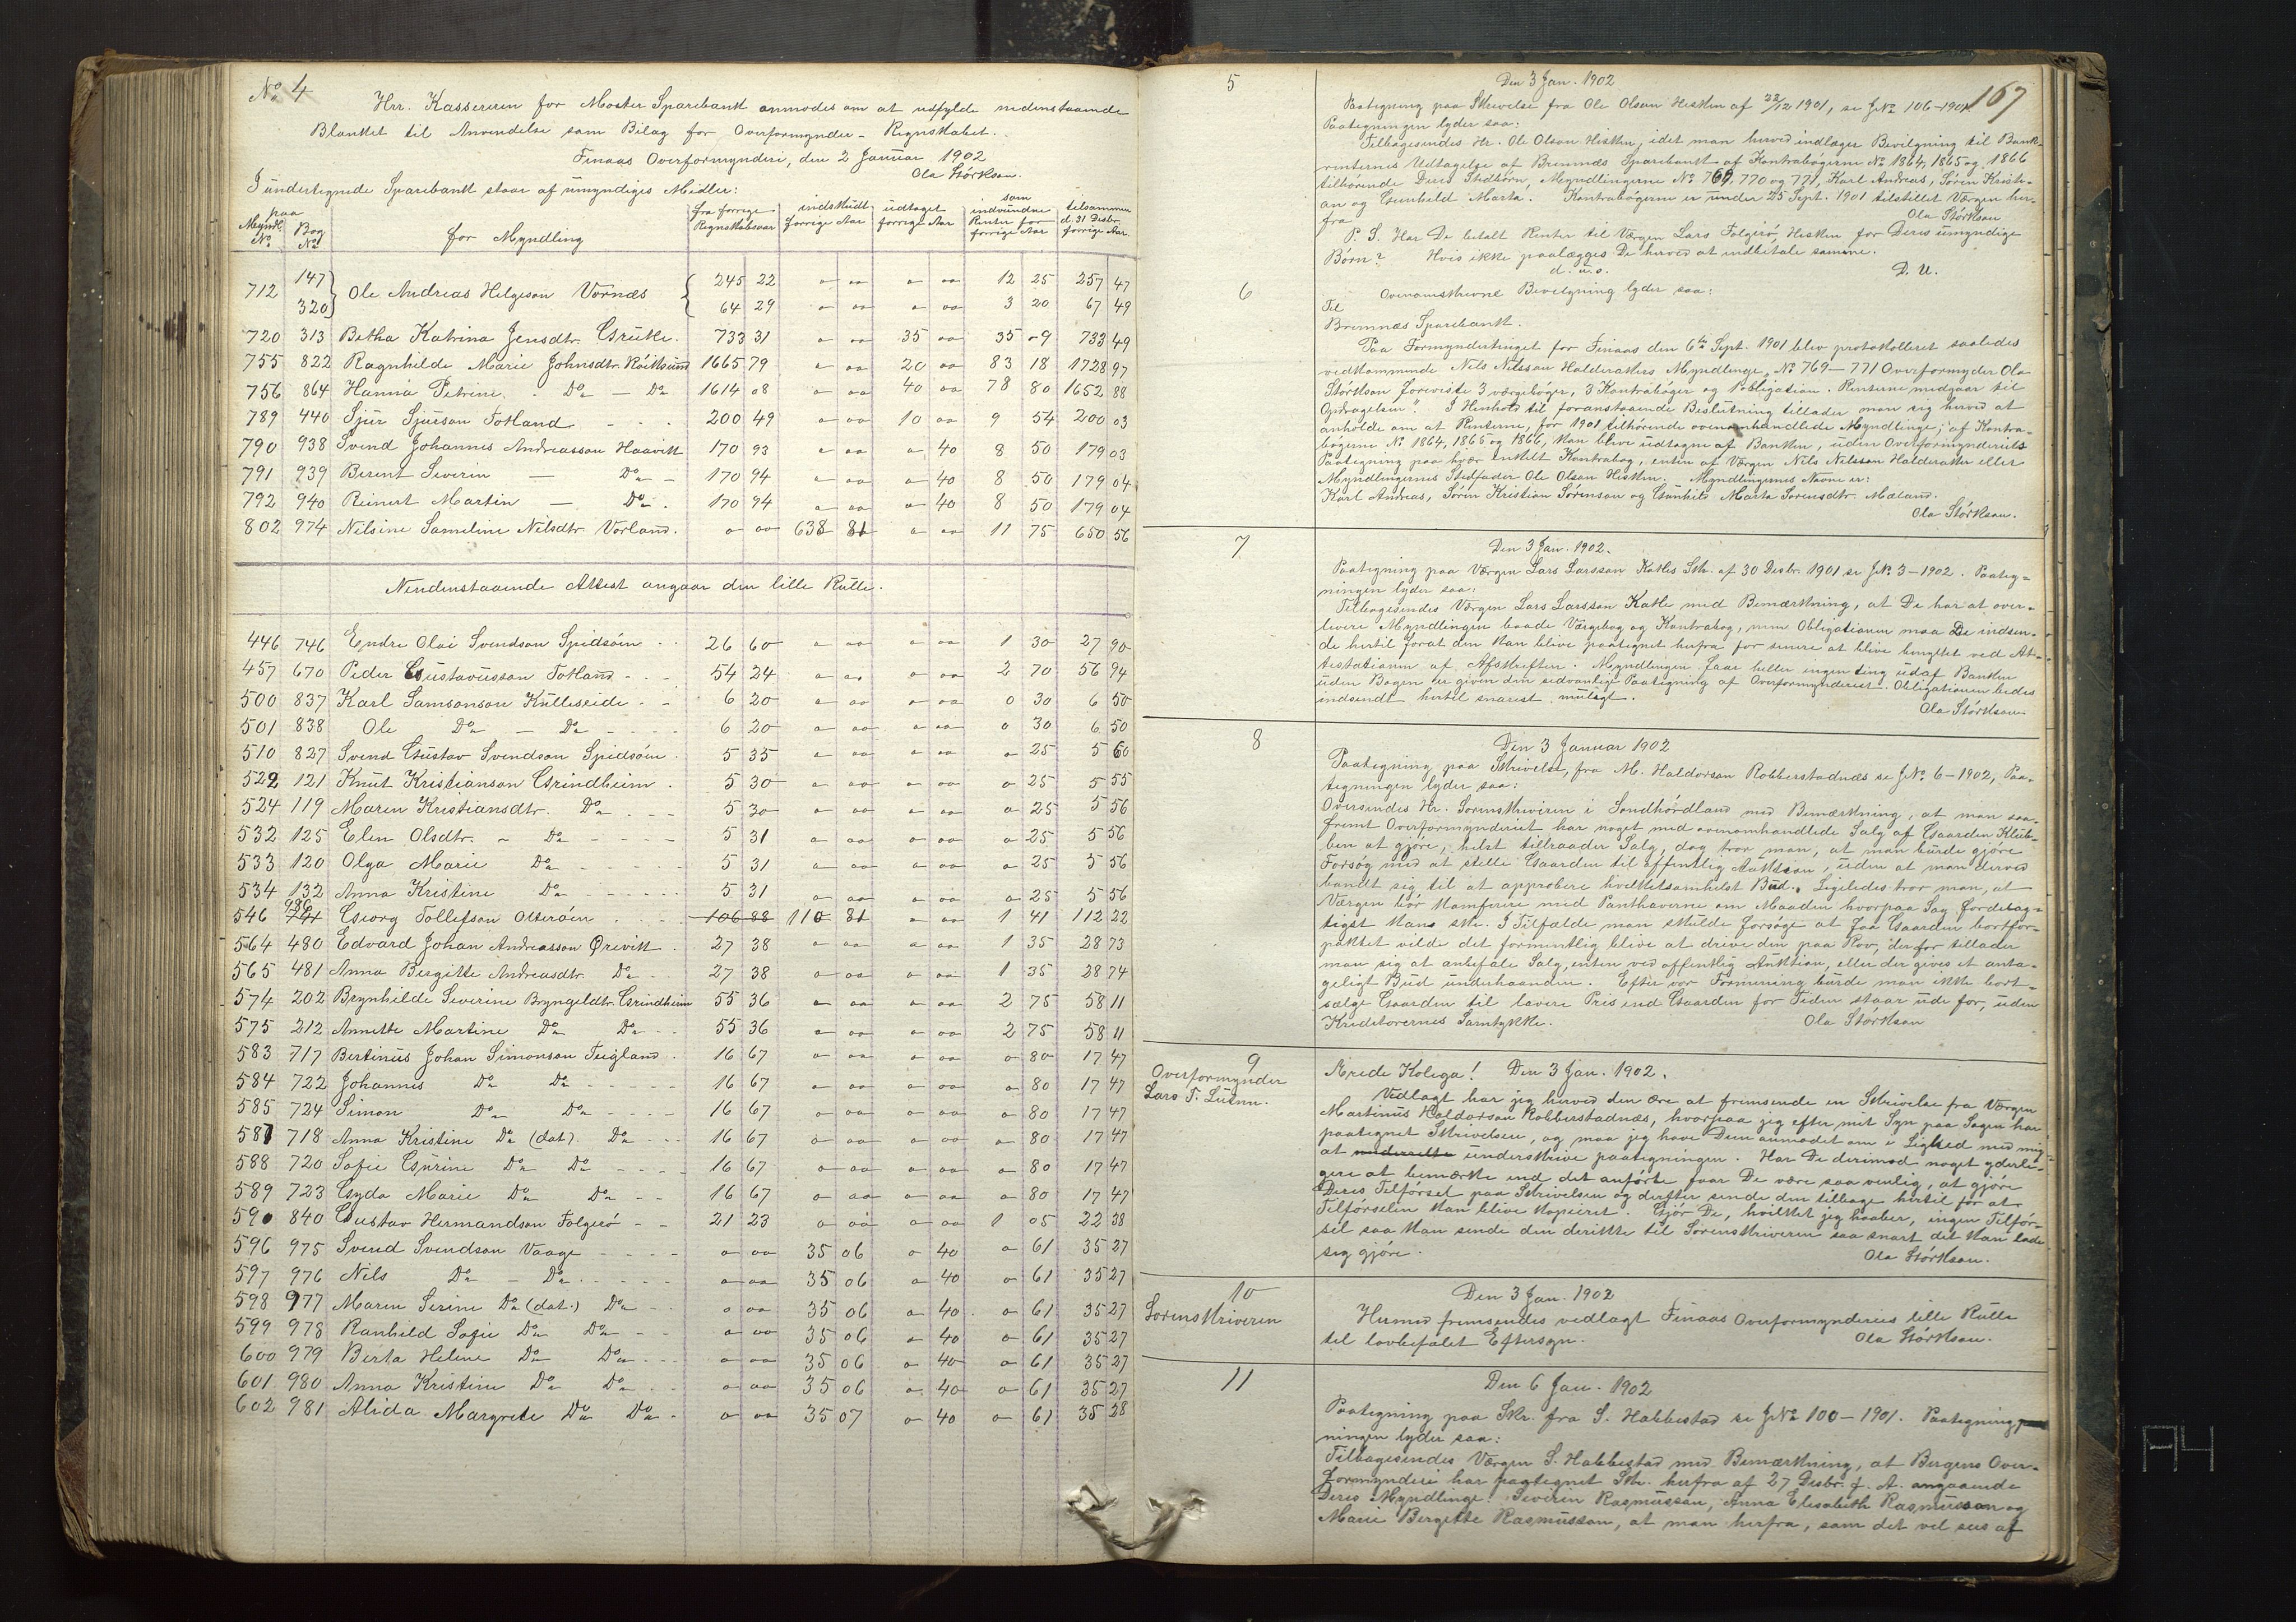 No 4
Hrr. Kassereren for Moster Sparebank anmodes om at udfylde nedenstaaende
Blanket til Anvendelse som Bilag for Overformynder-Regnskabet.
Finaas Overformynderi, den 2 Januar 1902
Ola Störkson.
I undertegnede Sparebank staar af umyndiges Midler:
paa Myndl. No | Bog No | for Myndling | fra forrige Regnskabsaar | indskudt forrige Aar | udtaget forrige Aar | som indvundne Renter for forrige Aar | tilsammen d. 31 Desbr. forrige Aar
712 147 Ole Andreas Helgeson Vornæs 245 22 - - 12 25 257 47
320 64 29 - - 3 20 67 49
720 313 Betha Katrina Jensdtr. Grutle. 733 31 - 35 00 35 09 733 49
755 822 Ragnhilde Marie Johnsdtr. Röiksund 1665 79 - 20 00 83 18 1728 97
756 864 Hanna Petrine. Do — Do 1614 08 - 40 00 78 80 1652 88
789 440 Sjur Sjurson Totland 200 49 - 10 00 9 54 200 03
790 938 Svend Johannes Andreasson Haavik 170 93 - 0 40 8 50 179 03
791 939 Berent Severin — Do 170 94 - 0 40 8 50 179 04
792 940 Reinert Martin — Do. 170 94 - 0 40 8 50 179 04
802 974 Nelsine Sameline Nilsdtr. Vorland. 0 00 638 81 0 00 11 75 650 56
Nendenstaaende Attest angaar den lille Rulle.
446 746 Endre Olai Svendson Spidsöen 26 60 - - 1 30 27 90
457 670 Peder Gustavusson Totland 54 24 - - 2 70 56 94
500 837 Karl Samsonson Kulleseide 6 20 - - 0 30 6 50
501 838 Ole Do — Do 6 20 - - 0 30 6 50
510 827 Svend Gustav Svendson Spidsöen 5 35 - - 0 25 5 60
522 121 Knut Kristianson Grindheim 5 30 - - 0 25 5 55
524 119 Maren Kristiansdtr. Do 5 30 - - 0 25 5 56
532 125 Elen Olsdtr. Do 5 31 - - 0 25 5 56
533 120 Olga Marie Do 5 31 - - 0 25 5 56
534 132 Anna Kristine Do 5 31 - - 0 25 5 56
546 986 Georg Tollefson Otteröen 106 88 110 81 0 00 1 41 112 22
564 480 Edvard Johan Andreasson Örevik 27 38 - - 1 35 28 73
565 481 Anna Bergitte Andreasdtr. Do 27 38 - - 1 35 28 74
574 202 Brynhilde Severine Bryngeldtr. Grindheim 55 36 - - 2 75 58 11
575 212 Annette Martine Do Do 55 36 - - 2 75 58 11
583 717 Bertinus Johan Simonson Teigland 16 67 - - 0 80 17 47
584 722 Johannes Do Do 16 67 - - 0 80 17 47
585 724 Simon Do Do 16 67 - - 0 80 17 47
587 718 Anna Kristine Do (dat). Do 16 67 - - 0 80 17 47
588 720 Sofie Gurine Do Do 16 67 - - 0 80 17 47
589 723 Gyda Marie Do Do 16 67 - - 0 80 17 47
590 840 Gustav Hermandson Folgerö 21 23 - - 1 05 22 38
596 975 Svend Svendson Vaage 0 00 35 06 0 40 0 61 35 27
597 976 Nils Do — Do 0 00 35 06 0 40 0 61 35 27
598 977 Maren Serine Do (dat.) Do 0 00 35 06 0 40 0 61 35 27
599 978 Ranheld Sofie Do Do 0 00 35 06 0 40 0 61 35 27
600 979 Berta Helene Do Do 0 00 35 06 0 40 0 61 35 27
601 980 Anna Kristine Do Do 0 00 35 06 0 40 0 61 35 27
602 981 Alida Margrete Do Do 0 00 35 07 0 40 0 61 35 28
167
5
Den 3 Jan. 1902
Paategning paa Skrivelse fra Ole Olson Hisken af 1901, se JNo 106-1901.
Paategningen lyder saa:
Tilbagesendes Hr. Ole Olson Hisken, idet man herved indlæger Bevilgning til Bank-
renternes Udtagelse af Bremnæs Sparebank af Kontrabögerne No 1864, 1865 og 1866
tilhörende Deres Stedbörn, Myndlingerne No 769, 770 og 771, Karl Andreas, Sören Kristi-
an og Gunheld Marta. Kontrabögerne er under 25 Sept. 1901 tilstillet Værgen her-
fra. Ola Störkson
P. S. Har De betalt Renter til Værgen Lars Folgerö, Hisken for Deres umyndige
Börn? Hvis ikke paalægges De herved at indbetale samme.
d. u. s. D. U.
6
Ovenanskrevne Bevilgning lyder saa:
Til
Bremnæs Sparebank.
Paa Formynderthinget for Finaas den 6te Sept. 1901 blev protokolleret saaledes
vedkommende Nils Nilsson Halderakers Myndlinge, No 769-771 Overformynder Ola
Störkson foreviste 3 værgeböger, 3 Kontraböger og 1 obligation. Renterne medgaar til
Opdragelsen". I Henhold til foranstaaende Beslutning tillader man sig herved at
anholde om at Renterne, för 1901 tilhörende ovenomhandlede Myndlinge, af Kontra-
bögerne No 1864, 1865 og 1866, kan blive udtagne af Banken, uden Overformynderiets
Paategning paa hver enkelt Kontrabog, enten af Værgen Nils Nilsson Halderaker eller
Myndlingernes Stedfader Ole Olson Hisken. Myndlingernes Navne er:
Karl Andreas, Sören Kristian Sörenson og Gunheld Marta Sorensdtr. Mæland.
Ola Störkson.
7
Den 3 Jan. 1902.
Paategning paa Værgen Lars Larsson Katles Skr. af 30 Desbr. 1901 se JNo. 3-1902. Paateg-
ningen lyder saa:
Tilbagesendes Værgen Lars Larsson Katle med Bemærkning, at De har at over-
levere Myndlingen baade Værgebog og Kontrabog, men Obligationen maa De indsen-
de hertil forat den kan blive paategnet herfra for senere at blive benyttet ved At-
testationen af Afskriften. Myndlingen faar heller ingen ting udaf Banken
uden Bogen er given den sedvanlige Paategning af Overformynderiet. Obligationen bedes
indsendt hertil snarest muligt.
Ola Störkson
8
Den 3 Januar 1902
Paategning paa Skrivelse, fra M. Haldorson Robberstadnæs se JNo. 6-1902, Paa-
tegningen lyder saa:
Oversendes Hr. Sorenskriveren i Söndhördland med Bemærkning, at man saa-
fremt Overformynderiet har noget med ovenomhandlede Salg af Gaarden Klub-
ben at gjöre, helst tilraader Salg, dog tror man, at man burde gjöre
Forsög med at stille Gaarden til offentlig Auktion, uden at man derved
bandt sig til at approbere hvilketsomhelst Bud. Ligeledes tror man, at
Værgen bör konferere med Panthaverne om Maaden hvorpaa Sag fordelag-
tigst kans ske. I Tilfælde man skulde forsöge at faa Gaarden bortfor-
paktet vilde det formentlig blive at drive den paa Rov, derfor tillader
man sig at anbefale Salg, enten ved offentlig Auktion, eller der gives et anta-
geligt Bud underhaanden. Efter vor Formening burde man ikke bort-
sælge Gaarden til lavere Pris end Gaarden for Tiden staar ude for, uden
Kreditorernes Samtykke. Ola Störkson
9
Overformynder
Lars T. Lunne.
Ærede Kolega! Den 3 Jan. 1902.
Vedlagt har jeg herved den ære at fremsende en Skrivelse fra Værgen
Martinus Haldorson Robberstadnæs, hvorpaa jeg efter mit Syn paa Sagen har
paategnet Skrivelsen, og maa jeg have Dem anmodet om i Lighed med mig
at underskrive paategningen. Har De derimod noget yderli-
gere at bemærke end det anförte faar De være saa venlig, at gjöre
Deres Tilförsel paa Skrivelsen og derefter sende den tilbage hertil for at
Tilförselen kan blive kopieret. Gjör De, hvilket jeg haaber, ingen Tilför-
sel saa kan sende den derikte til Sorenskriveren saa snart det kan lade
sig gjöre. Ola Störkson.
10
Sorenskriveren
Den 3 Jan. 1902
Hermed fremsendes vedlagt Finaas Overformynderies lille Rulle
til lovbefalet Eftersyn. Ola Störkson.
11
Den 6 Jan. 1902
Paategning paa Skr. fra S. Habbestad se JNo 100-1901. Paategning
ningen lyder saa:
Tilbagesendes Værgen S. Habbestad med Bemærkning, at Bergens Over-
formynderi har paategnet Skr. herfra af 27 Desbr. f. A. angaaende
Deres Myndlinge: Severin Rasmusson, Anna Elisabeth Rasmusson og
Marie Bergitte Rasmusson, at man herfra, som det vil sees af